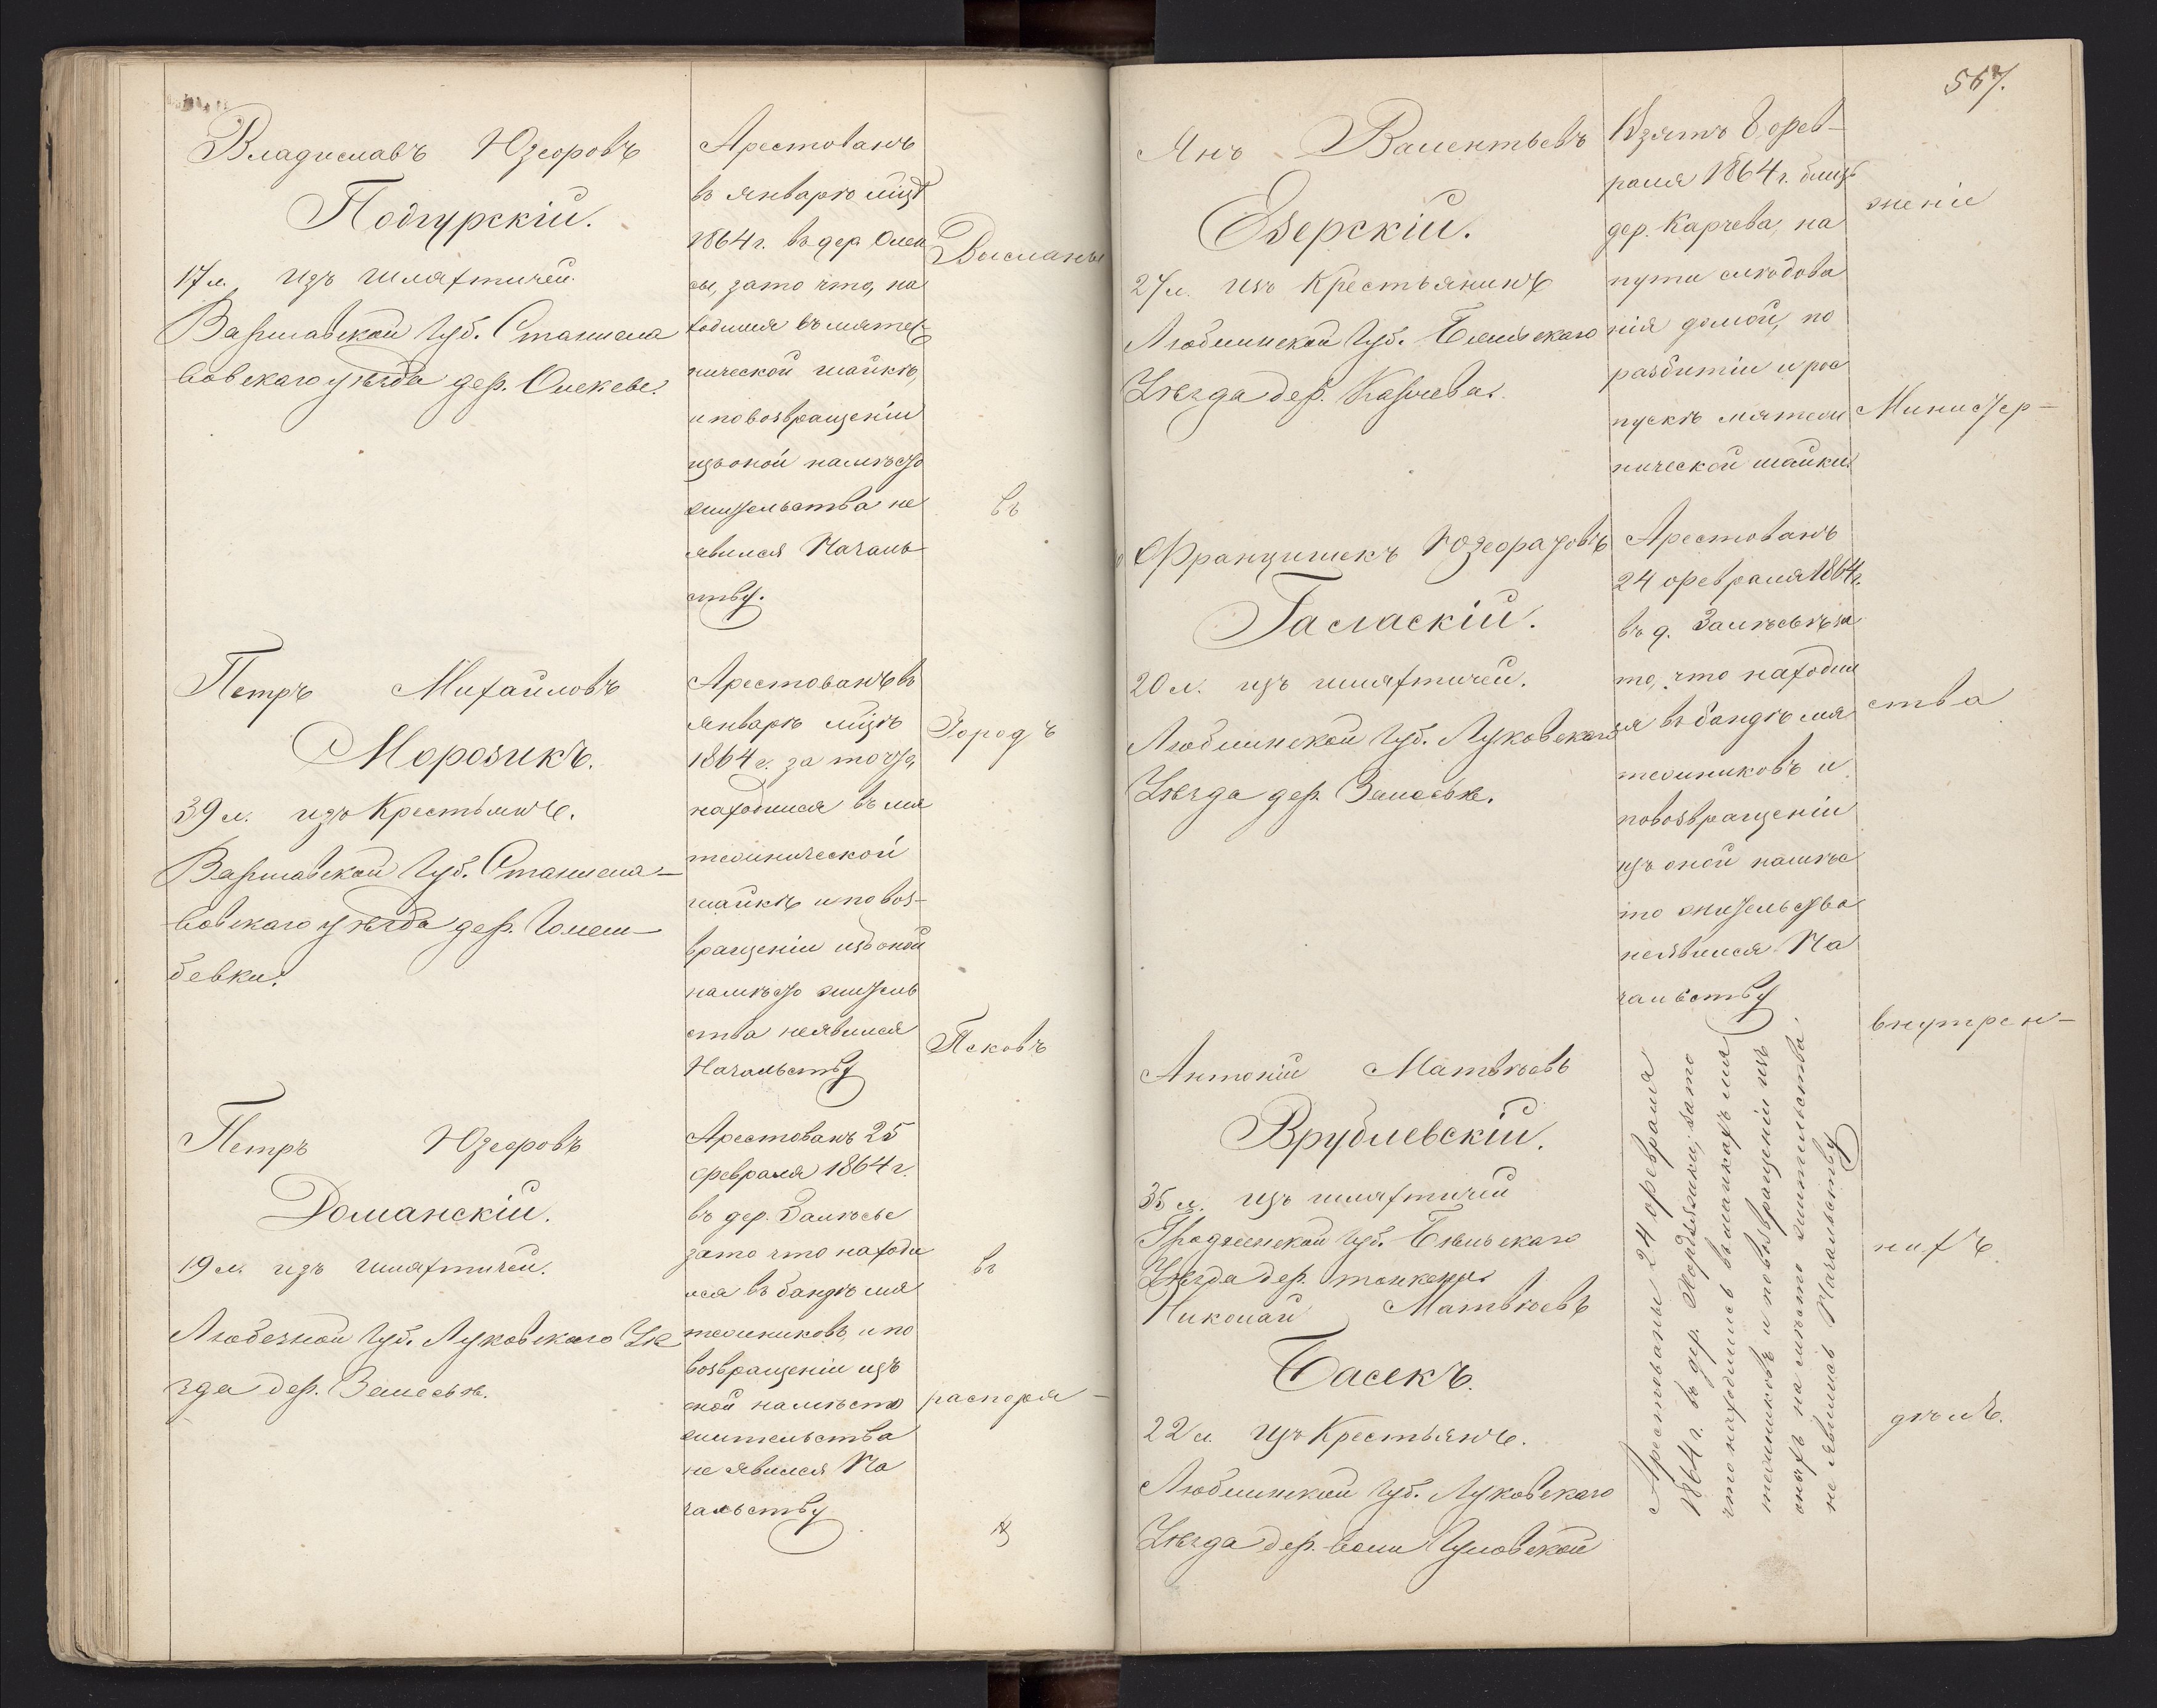 Владиславъ Юзефовъ
Подгурскій.
17 л. изъ шляхтичей
Варшавской Губ. Станисла
вовскаго уѣзда дер. Олексве.
Арестованъ
въ январѣ мцѣ
1864 г. въ дер. Олек
сы, за то что, на
ходился въ мятеж
нической шайкѣ,
и по возвращеніи
изъ оной на мѣсто
жительства не
явился Началь
ству.
Петръ Михайловъ
Морозикъ.
39 л. изъ Крестьянъ.
Варшавской Губ. Станисла-
вовскаго уѣзда дер. Голем-
бевки.
Арестованъ въ
январѣ мцѣ
1864 г. за то что,
находился въ мя
тежнической
шайкѣ и по воз-
вращеніи изъ оной
на мѣсто житель
ства не явился
Начальству
Петръ Юзефовъ
Доманскій.
19 л. изъ шляхтичей.
Любезной Губ. Луковскаго Уѣ
зда дер. Залесье.
Арестованъ 25
февраля 1864 г.
въ дер. Залѣсье
за то что находи
лся въ бандѣ мя
тежниковъ, и по
возвращеніи изъ
оной на мѣсто
жительства
не явился На
чальству
Высланы
въ
Городъ
Псковъ
въ
распоря-
567.
Янъ Валентьевъ
Езерскій.
27 л. изъ Крестьянинъ
Люблинской Губ. Бельскаго
Уѣзда дер. Карчева.
Взятъ 8 фев-
раля 1864 г. близъ
дер. Карчева, на
пути слѣдова
нія домой, по
разбитіи и рос
пускѣ мятеж
нической шайки
Францишекъ Юзефатовъ
Гасласкій.
20 л. изъ шляхтичей.
Люблинской Губ. Луковскаго
Уѣзда дер. Залесье.
Арестованъ
24 февраля 1864 г.
въ д. Залѣсьѣ за
то, что находил
ся въ бандѣ мя
тежниковъ и
по возвращеніи
изъ оной на мѣс
то жительства
не явился На
чальству
Антоній Матвѣевъ
Врублевскій.
35 л. изъ шляхтичей
Гродненской Губ. Бѣльскаго
Уѣзда дер.
Николай Матвѣевъ
Басекъ.
22 л. изъ Крестьянъ.
Люблинской Губ. Луковскаго
Уѣзда дер. Воли Гуловской
Арестованы 24 февраля
1864 г. въ дер. за то
что находились въ шайкахъ мя
тежниковъ и по возвращеніи изъ
оныхъ на мѣсто жительства
не явились Начальству
женіе
Министер-
ства
внутрен-
нихъ
дѣлъ.